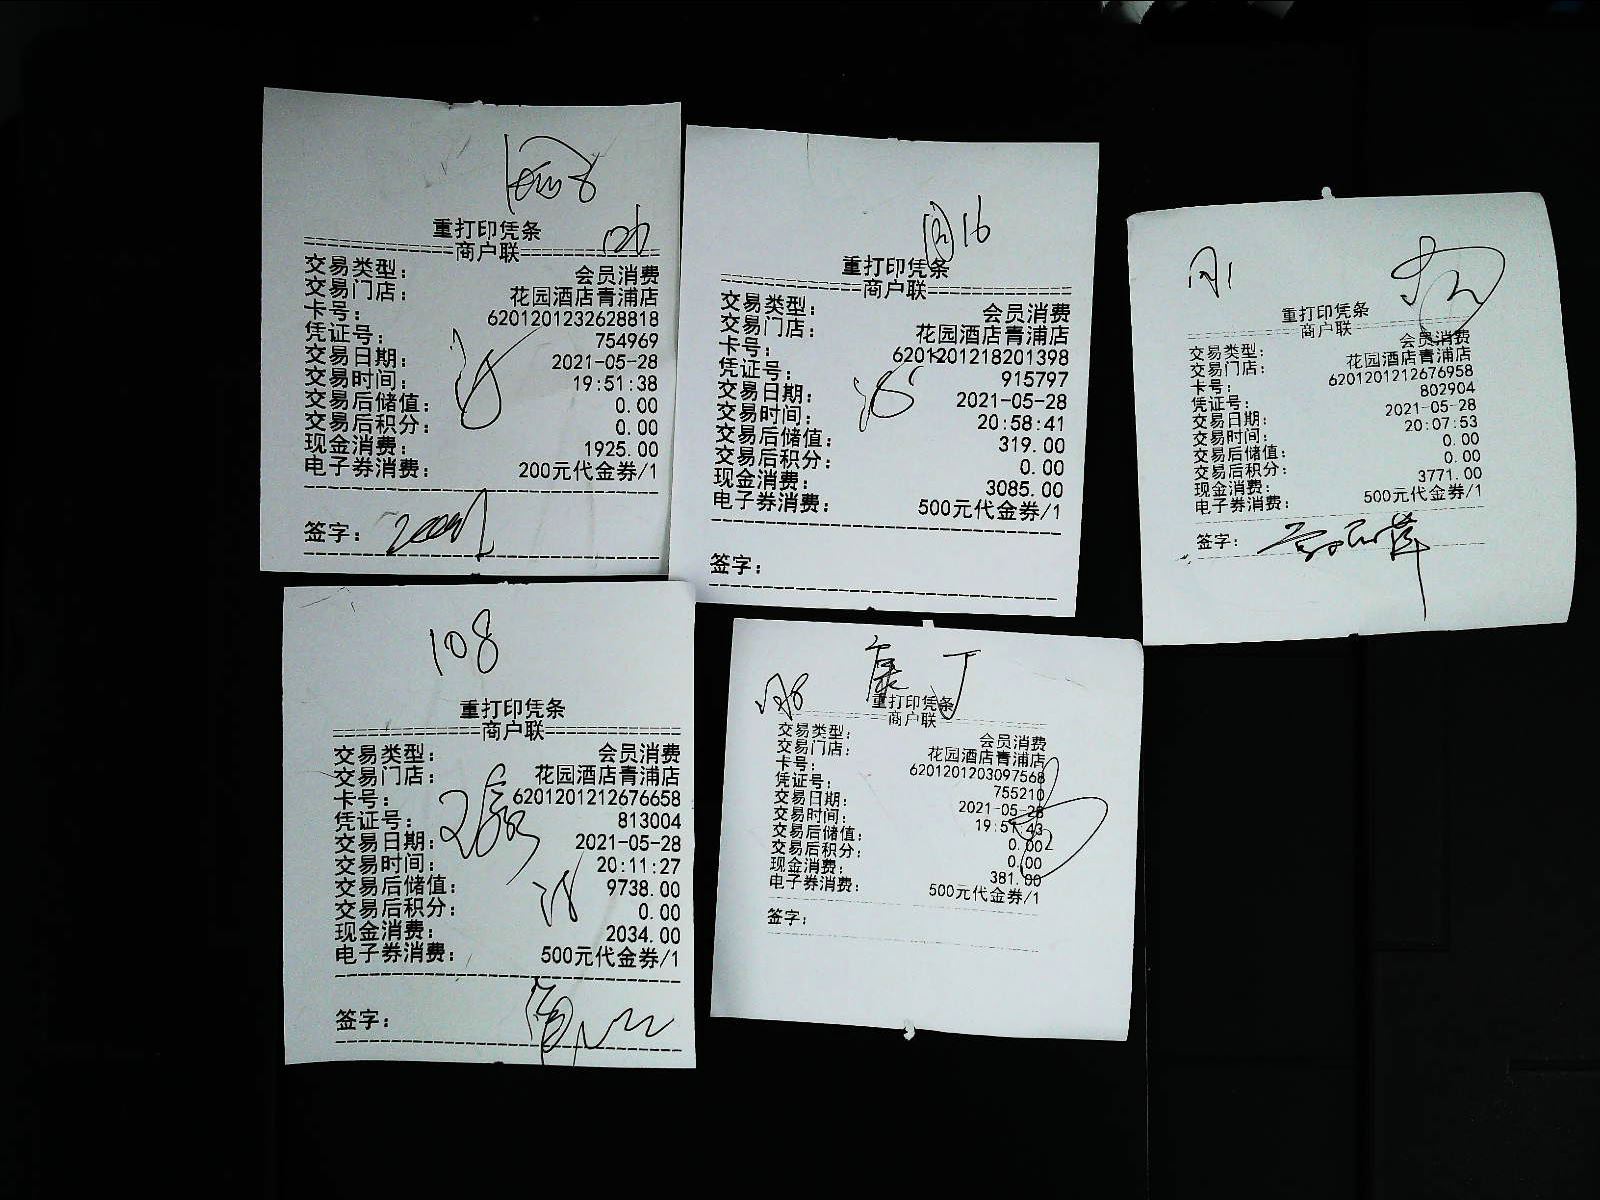 重打印凭条
商户联
交易类型： 会员消费
交易门店： 花园酒店青浦店
卡号： 6201201232628818
凭证号： 754969
交易日期： 2021-05-28
交易时间： 19:51:38
交易后储值： 0.00
交易后积分： 0.00
现金消费： 1925.00
电子券消费： 200元代金券/1
签字：
16
重打印凭条
商户联
交易类型： 会员消费
交易门店： 花园酒店青浦店
卡号： 6201201218201398
凭证号： 915797
交易日期： 2021-05-28
交易时间： 20:58:41
交易后储值： 319.00
交易后积分： 0.00
现金消费： 3085.00
电子券消费： 500元代金券/1
签字：
重打印凭条
商户联
交易类型： 会员消费
交易门店： 花园酒店青浦店
卡号： 6201201212676958
凭证号： 802904
交易日期： 2021-05-28
交易时间： 20:07:53
交易后储值： 0.00
交易后积分： 0.00
现金消费： 3771.00
电子券消费： 500元代金券/1
签字：
108
重打印凭条
商户联
交易类型： 会员消费
交易门店： 花园酒店青浦店
卡号： 6201201212676658
凭证号： 813004
交易日期： 2021-05-28
交易时间： 20:11:27
交易后储值： 9738.00
交易后积分： 0.00
现金消费： 2034.00
电子券消费： 500元代金券/1
签字：
康丁
重打印凭条
商户联
交易类型： 会员消费
交易门店： 花园酒店青浦店
卡号： 6201201203097568
凭证号： 755210
交易日期： 2021-05-28
交易时间： 19:51:43
交易后储值： 0.00
交易后积分： 0.00
现金消费： 381.00
电子券消费： 500元代金券/1
签字：